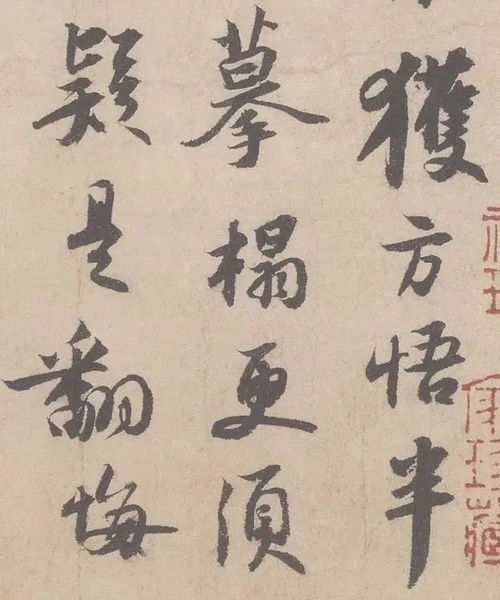 獲方悟半
摹榻更須
疑是翻悔